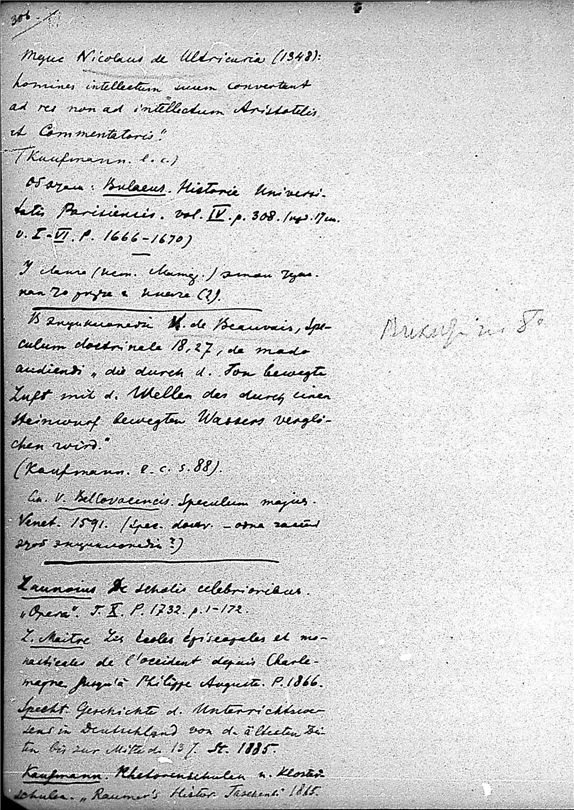 306
Nicolaus de Ultricuria (1348):
homines intellectum suum convertant
ad res non ad intellectum Aristotelis
et Commentatoris."
(Kaufmann. l. c.)
Bulaeus. Historia Universi-
tatis Parisiensis. vol. IV. p. 308.
v. I-VI. P. 1666-1670)
(2).
В энциклопедии V. de Beauvais, Spe-
culum doctrinale 18, 27, de modo
audiendi „die durch d. Ton bewegte
Luft mit d. Wellen des durch einen
Steinwurf bewegten Wassers vergli-
chen wird."
(Kaufmann. l. c. s. 88).
См. V. Bellovacensis. Speculum majus.
Venet. 1591. (Spec. doctr. – одна
энциклопедии?)
Launoius De scholis celebrioribus.
„Opera". T. X. P. 1732. p. 1-172.
L. Maitre Les écoles épiscopales et mo-
nasticales de l'occident depuis Charle-
magne jusqu'à Philippe Auguste. P. 1866.
Specht. Geschichte d. Unterrichtswe-
sens in Deutschland von d. ältesten Zei-
ten bis zur Mitte d. 13 J. St. 1885.
Kaufmann. Rhetorenschulen u. Kloster-
schulen. „Raumer's Histor. Taschenb."